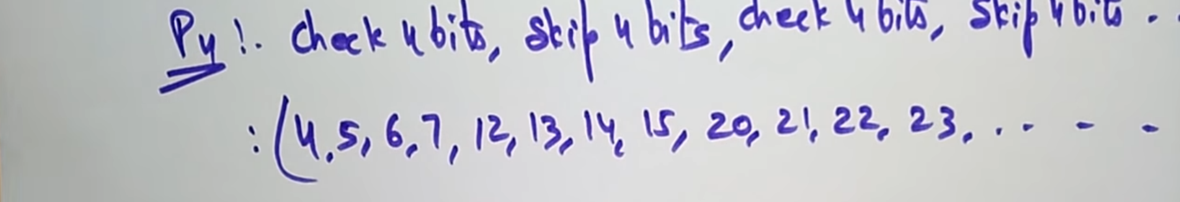 P4 :- Check 4 bits, Skip 4 bits, check 4 bits, Skip 4 bits . .
: (4,5, 6,7, 12, 13, 14, 15, 20, 21, 22, 23, . . - -